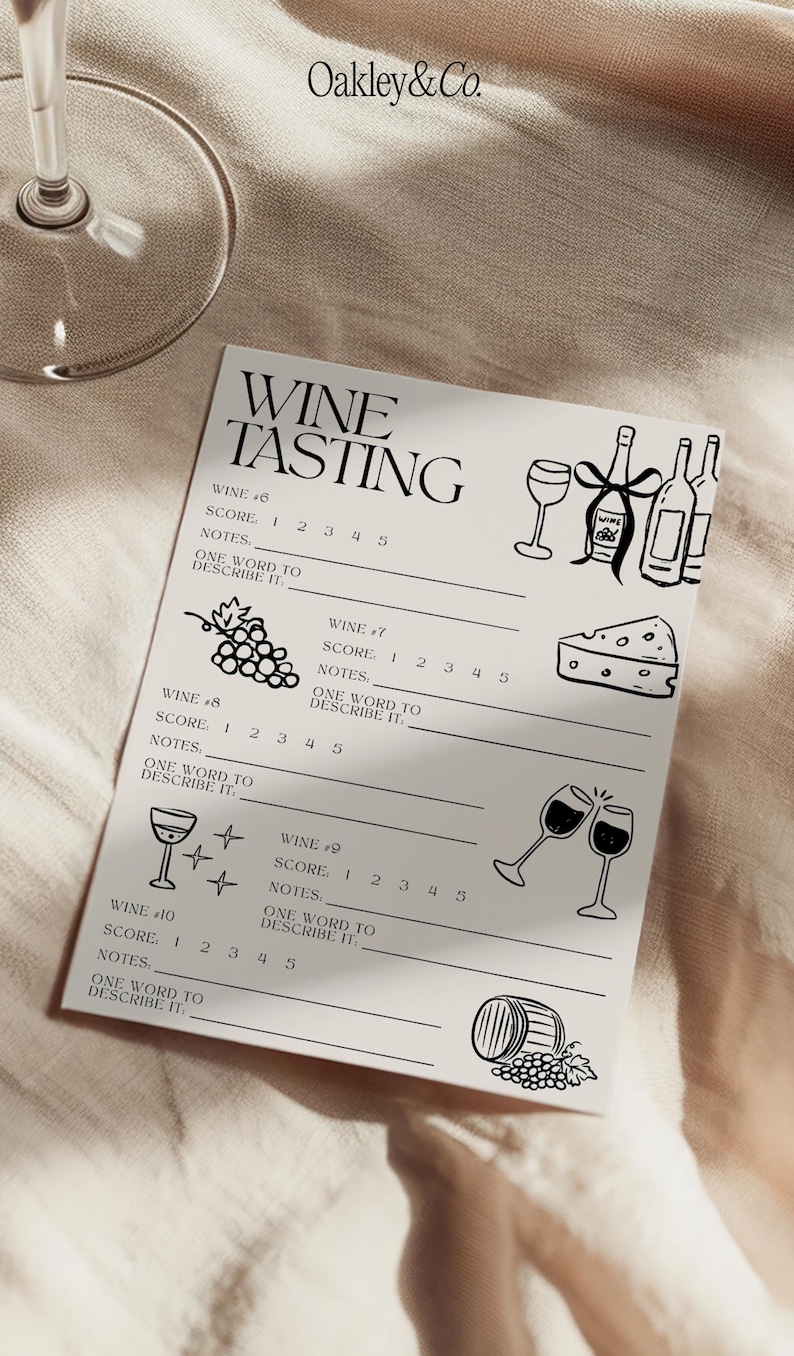 Oakley&Co.
WINE
TASTING
WINE #6
SCORE: 1 2 3 4 5
NOTES:
ONE WORD TO
DESCRIBE IT:
WINE
WINE #7
SCORE: 1 2 3 4 5
NOTES:
ONE WORD TO
DESCRIBE IT:
WINE #8
SCORE: 1 2 3 4 5
NOTES:
ONE WORD TO
DESCRIBE IT:
WINE #9
SCORE: 1 2 3 4 5
NOTES:
ONE WORD TO
DESCRIBE IT:
WINE #10
SCORE: 1 2 3 4 5
NOTES:
ONE WORD TO
DESCRIBE IT: